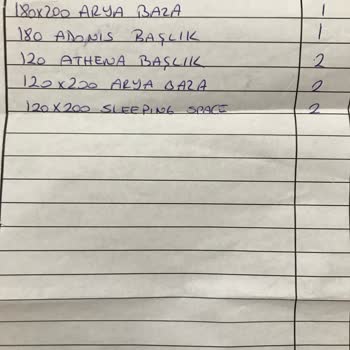 180x200 ARYA BAZA 1
180 ADONIS BAŞLIK 1
120 ATHENA BAŞLIK 2
120x200 ARYA BAZA 2
120x200 SLEEPING SPACE 2